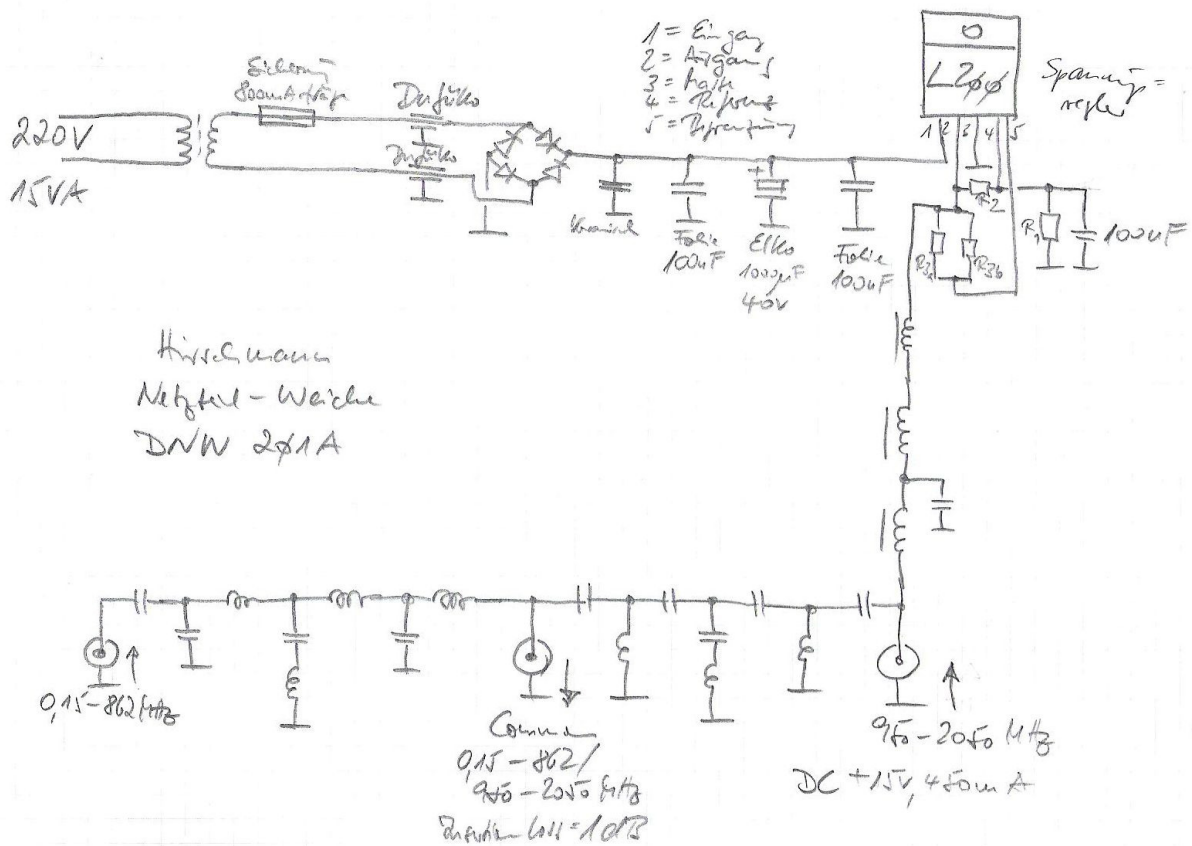 220V
15VA
Sicherung
800mA träge
Dufüko
Dufüko
1 = Eingang
2 = Ausgang
3 = Masse
4 = Referenz
5 = Begrenzung
L2øø
Spannungs=
regler
1 2 3 4 5
R2
R1
100nF
R3a
R3b
Keramik
Folie
100nF
Elko
1000µF
40V
Folie
100nF
+
Hirschmann
Netzteil-Weiche
DNW 2ø1A
0,15-862 MHz
Common
0,15-862/
950-2050 MHz
Insertion Loss=1dB
950-2050 MHz
DC +15V, 450mA